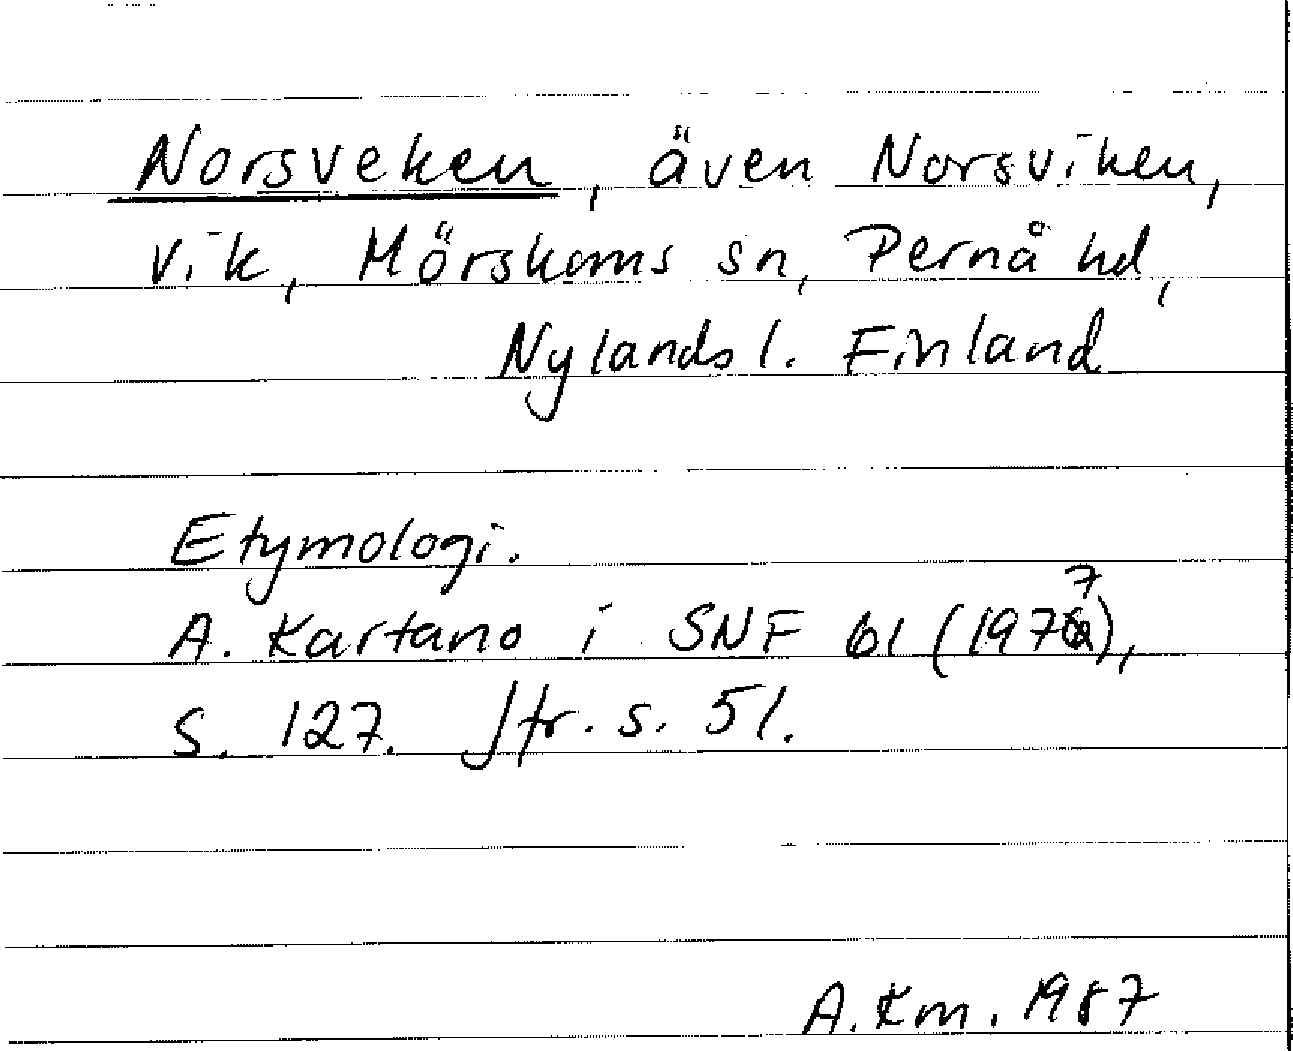 Norsveken, även Norsviken,
vik, Mörskoms sn, Pernå hd,
Nylands l. Finland
Etymologi.
A. Kartano i SNF 61 (1977),
s. 127. Jfr. s. 51.
A. Km. 1987